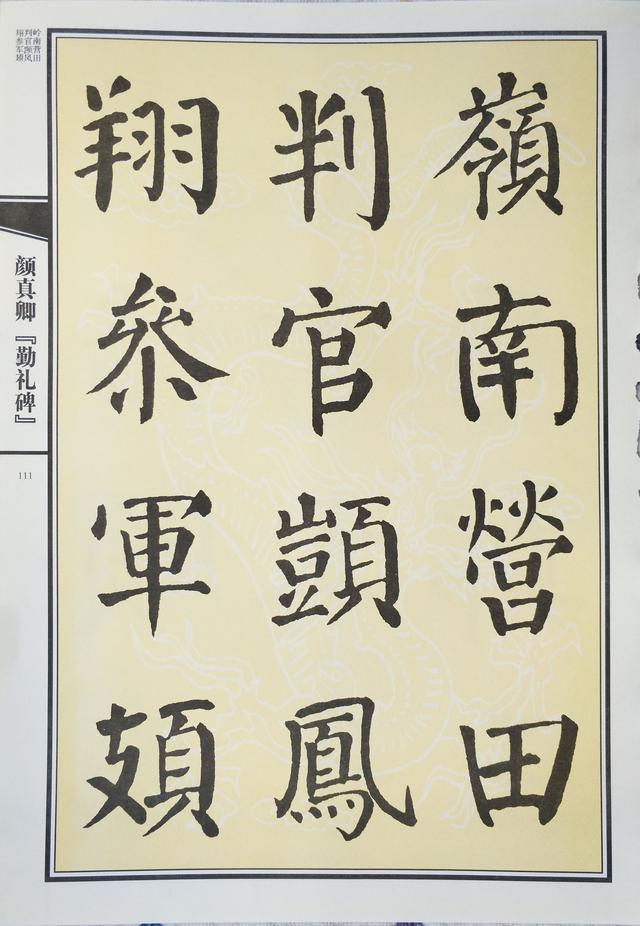 嶺南營田
判官顗鳳
翔叅軍頍
岭南营田
判官𫖮凤
翔参军
颜真卿『勤礼碑』
111